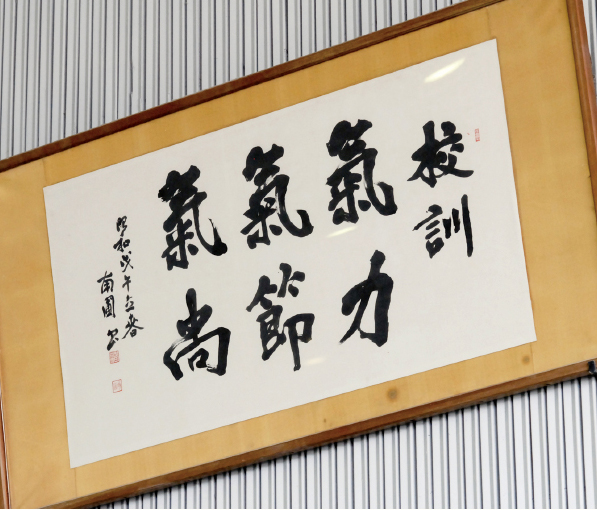 校訓
氣力
氣節
氣尚
昭和戊午立春
南圃書